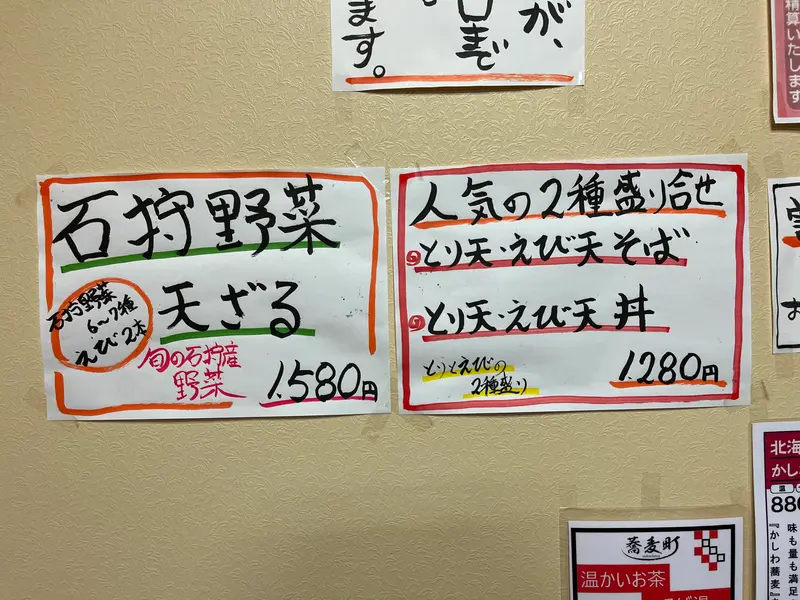 が、
日まで
ます。
精算いたします
石狩野菜
天ざる
石狩野菜
6〜7種
えび2本
旬の石狩産
野菜
1.580円
人気の2種盛り合せ
とり天・えび天そば
とり天・えび天丼
とりとえびの
2種盛り
1.280円
お
北海
かし
温
880
味も量も満足
『かしわ蕎麦』
蕎麦町
温かいお茶